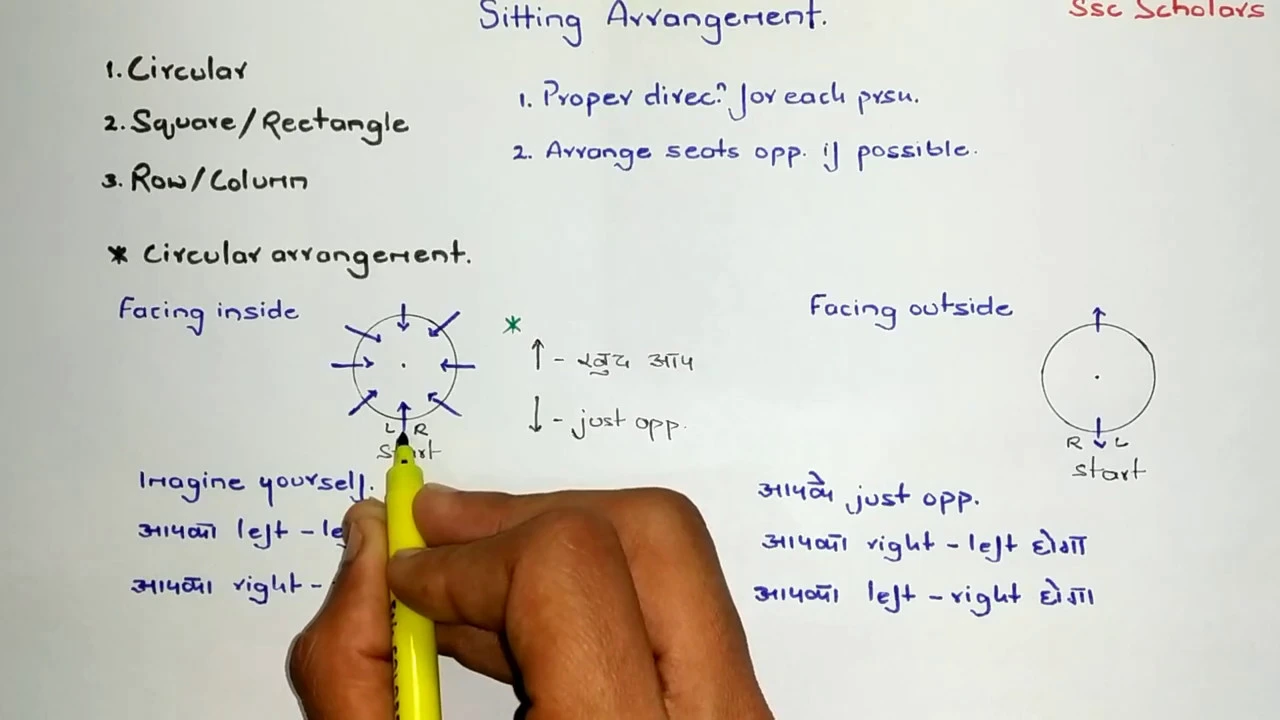 Sitting Arrangement.
Ssc Scholars
1. Circular
2. Square/Rectangle
3. Row/Column
1. Proper direcⁿ. for each prsn.
2. Arrange seats opp. if possible.
* Circular arrangement.
Facing inside
L R
Start
*
↑ - खुद आप
↓ - just opp.
Imagine yourself.
आपका left - le
आपका right -
Facing outside
R L
Start
आपके just opp.
आपका right - left होगा
आपका left - right होगा